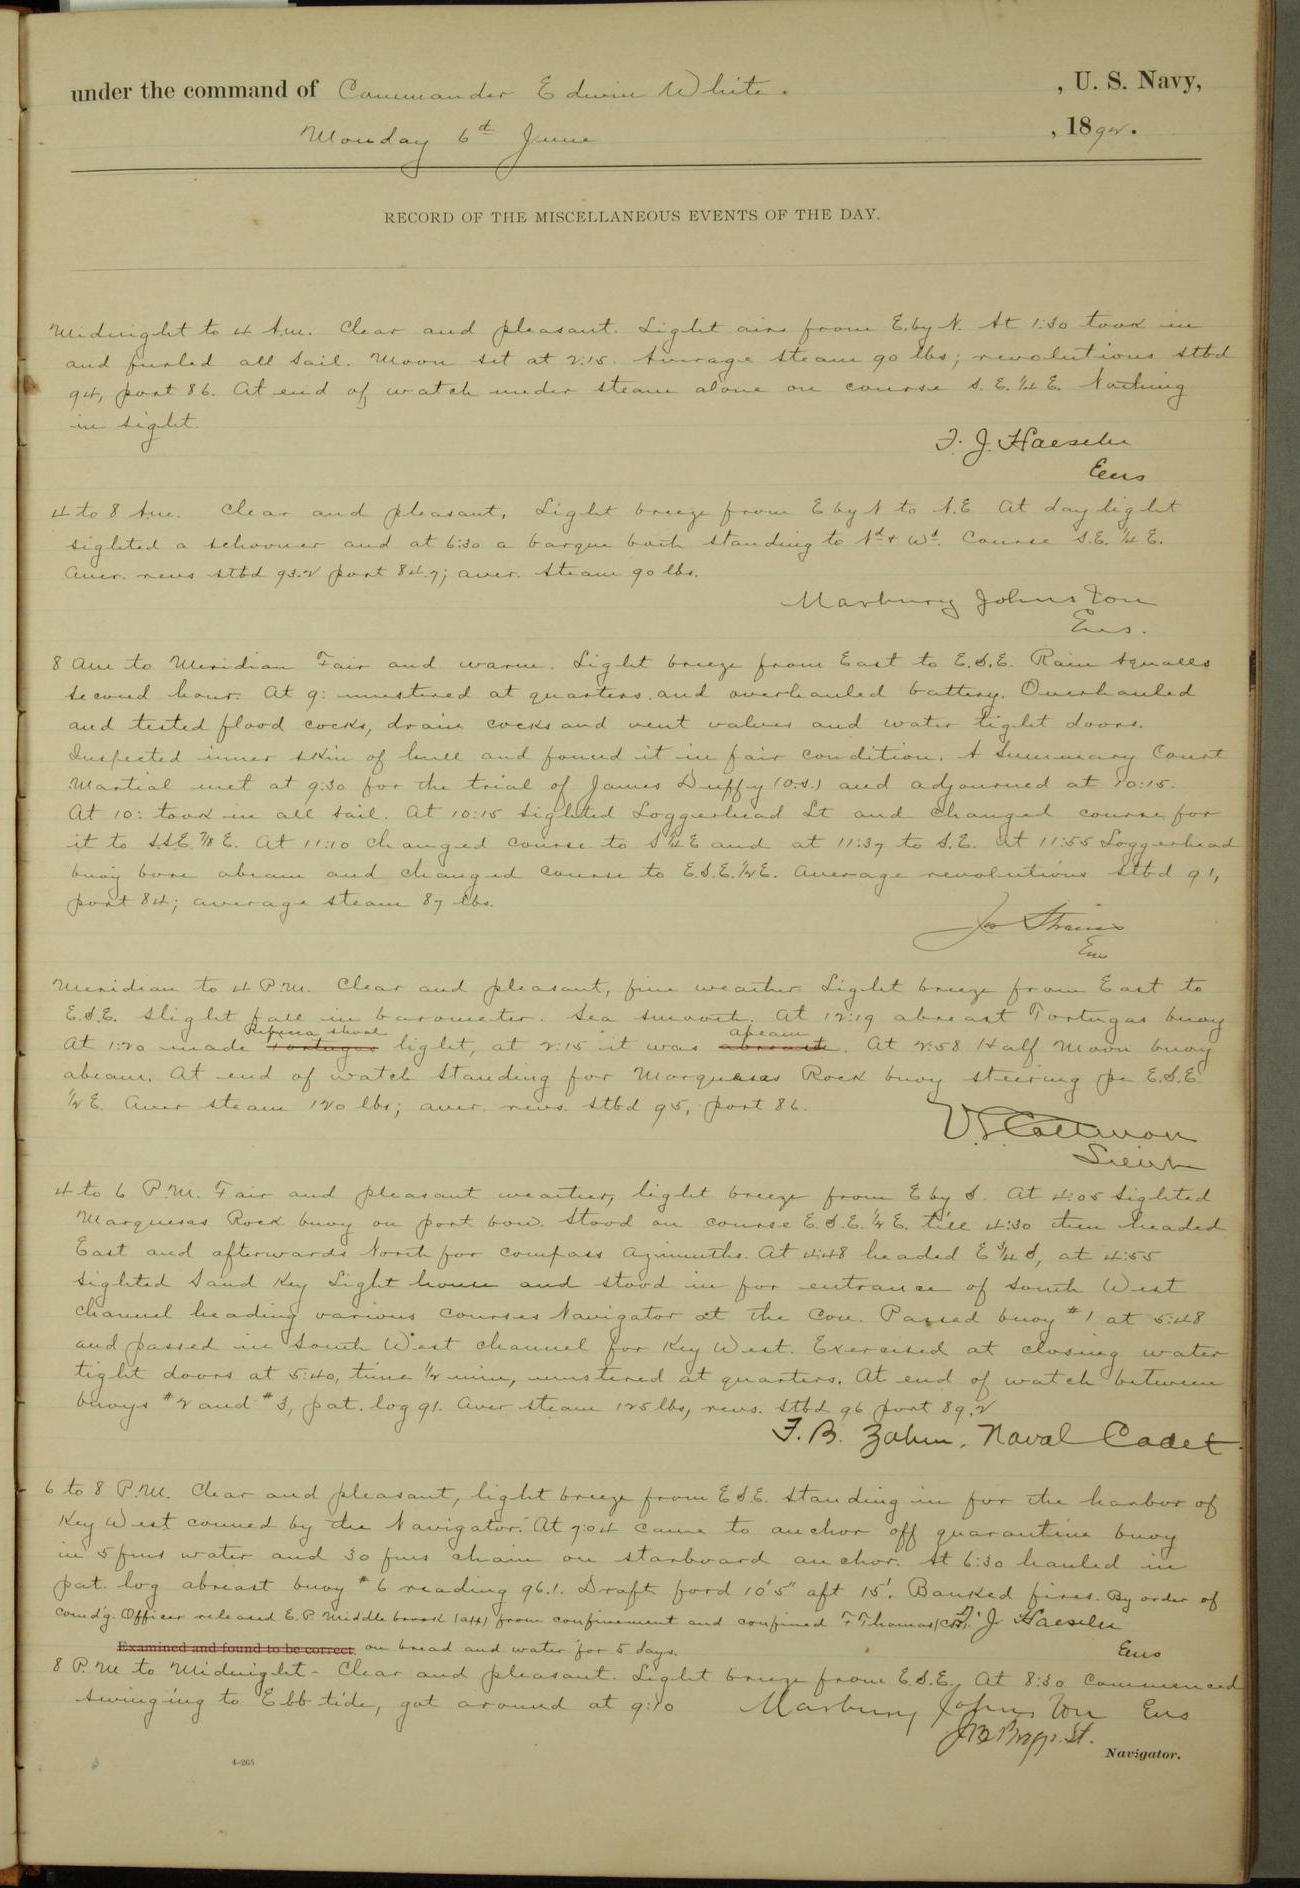 under the command of Commander Edwin White. , U. S. Navy,
Monday 6th June , 1892.
RECORD OF THE MISCELLANEOUS EVENTS OF THE DAY.
Midnight to 4 A.m. Clear and pleasant. Light airs from E. by N. At 1:30 took in
and furled all sail. Moon set at 2:15. Average steam 90 lbs; revolutions stbd
94, port 86. At end of watch under steam alone on course S. E. 1/4 E. Nothing
in sight.
F. J. Haeseler
Ens
4 to 8 A.m. Clear and pleasant. Light breeze from E by N to N.E. At day light
sighted a schooner and at 6:30 a barque both standing to Nd & Wd. Course S.E. 1/4 E.
Aver. revs stbd 93.2 port 84.7; aver. steam 90 lbs.
Marbury Johnston
Ens.
8 Am to Meridian Fair and warm. Light breeze from East to E.S.E. Rain squalls
second hour. At 9: mustered at quarters and overhauled battery. Overhauled
and tested flood cocks, drain cocks and vent valves and water tight doors.
Inspected inner skin of hull and found it in fair condition. A Summary Court
Martial met at 9:30 for the trial of James Duffy (O.S.) and adjourned at 10:15.
At 10: took in all sail. At 10:15 sighted Loggerhead Lt and changed course for
it to S.S.E. 7/8 E. At 11:10 changed course to S 1/2 E and at 11:37 to S.E. At 11:55 Loggerhead
buoy bore abeam and changed course to E.S.E. 1/2 E. Average revolutions stbd 91,
port 84; average steam 87 lbs.
Jos Strauss
Ens
Meridian to 4 P.M. Clear and pleasant, fine weather Light breeze from East to
E.S.E. slight fall in barometer. Sea smooth. At 12:19 abreast Tortugas buoy
Rebecca Shoal abeam
At 1:20 made Tortugas light, at 2:15 it was abreast. At 2:58 Half Moon buoy
abeam. At end of watch standing for Marquesas Rock buoy steering pc E.S.E.
1/2 E. Aver steam 120 lbs; aver. revs. stbd 95, port 86.
V. S. Cottman
Lieut
4 to 6 P.M. Fair and pleasant weather, light breeze from E by S. At 4:05 sighted
Marquesas Rock buoy on port bow. Stood on course E.S.E. 1/2 E. till 4:30 then headed
East and afterwards North for compass azimuths. At 4:48 headed E 3/4 S, at 4:55
sighted Sand Key Light house and stood in for entrance of South West
channel heading various courses Navigator at the Con. Passed buoy #1 at 5:48
and passed in South West channel for Key West. Exercised at closing water
tight doors at 5:40, time 1/2 min, mustered at quarters. At end of watch between
buoys #2 and #3, pat. log 91. Aver steam 125 lbs, revs. stbd 96 port 89.2
F. B. Zahm. Naval Cadet
6 to 8 P.M. Clear and pleasant, light breeze from E S E. Standing in for the harbor of
Key West conned by the Navigator. At 7:04 came to anchor off quarantine buoy
in 5 fms water and 30 fms chain on starboard anchor. At 6:30 hauled in
pat. log abreast buoy #6 reading 96.1. Draft ford 10'5" aft 15'. Banked fires. By order of
Comd'g. Officer released E. P. Middlebrook from confinement and confined F Thomas F. J. Haeseler
Examined and found to be correct. on bread and water for 5 days. Ens
8 P.M to Midnight - Clear and pleasant. Light breeze from E.S.E. At 8:30 commenced
swinging to Ebb tide, got around at 9:10 Marbury Johnston Ens
Navigator.
4-265